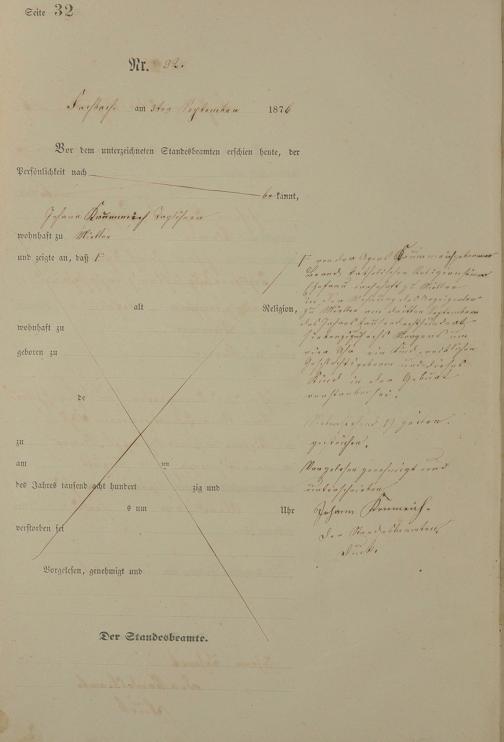 Seite 32
Nr. 32.
am 3ten September 1876
Vor dem unterzeichneten Standesbeamten erschien heute, der
Persönlichkeit nach
bekannt,
Johann Krumreich Taglöhner
wohnhaft zu Müllen
und zeigte an, daß
alt Religion,
wohnhaft zu
geboren zu
de
zu
am um
des Jahres tausend acht hundert zig und
s um Uhr
verstorben sei
Vorgelesen, genehmigt und
Der Standesbeamte.
von der Agnes Krumreich geborene
katholischer Religion seiner
Ehefrau wohnhaft zu Müllen
in der Wohnung des Anzeigenden
zu Müllen am dritten September
des Jahres tausend achthundert
siebenzig sechs Morgens um
vier Uhr ein Kind weiblichen
Geschlechts geboren und dieses
Kind in der Geburt
verstorben sei.
17 Zeilen
gestrichen.
Vorgelesen genehmigt und
unterschrieben
Johann Krumreich.
Der Standesbeamte,